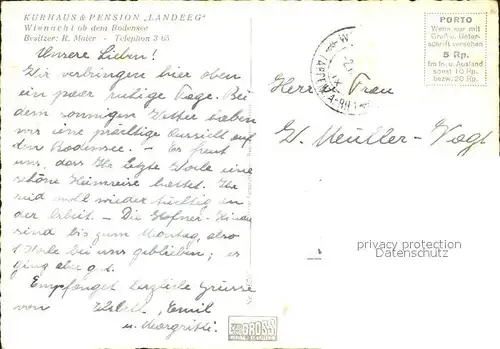 KURHAUS & PENSION „LANDEGG"
Wienacht ob dem Bodensee
Besitzer: R. Maier - Telephon 3 65
Unsere Lieben!
Wir verbringen hier oben
ein paar ruhige Tage. Bei
dem sonnigen Wetter haben
wir eine prächtige Aussicht auf
den Bodensee. - Es freut
uns, dass Ihr letzte Woche eine
schöne Heimreise hattet. Ihr
seid wohl wieder tüchtig an
der Arbeit. - Die Hofner-
sind bis zum Montag, also
1 Woche bei uns geblieben; es
ging aber gut.
Empfanget herzliche Grüsse
von Emil
u. Margritli.
PORTO
Wenn nur mit
Gruß u. Unter-
schrift versehen
5 Rp.
Im In- u. Ausland
sonst 10 Rp.
bezw. 20 Rp.
Frau
Müller-Vogt
privacy protection
Datenschutz
GROSS